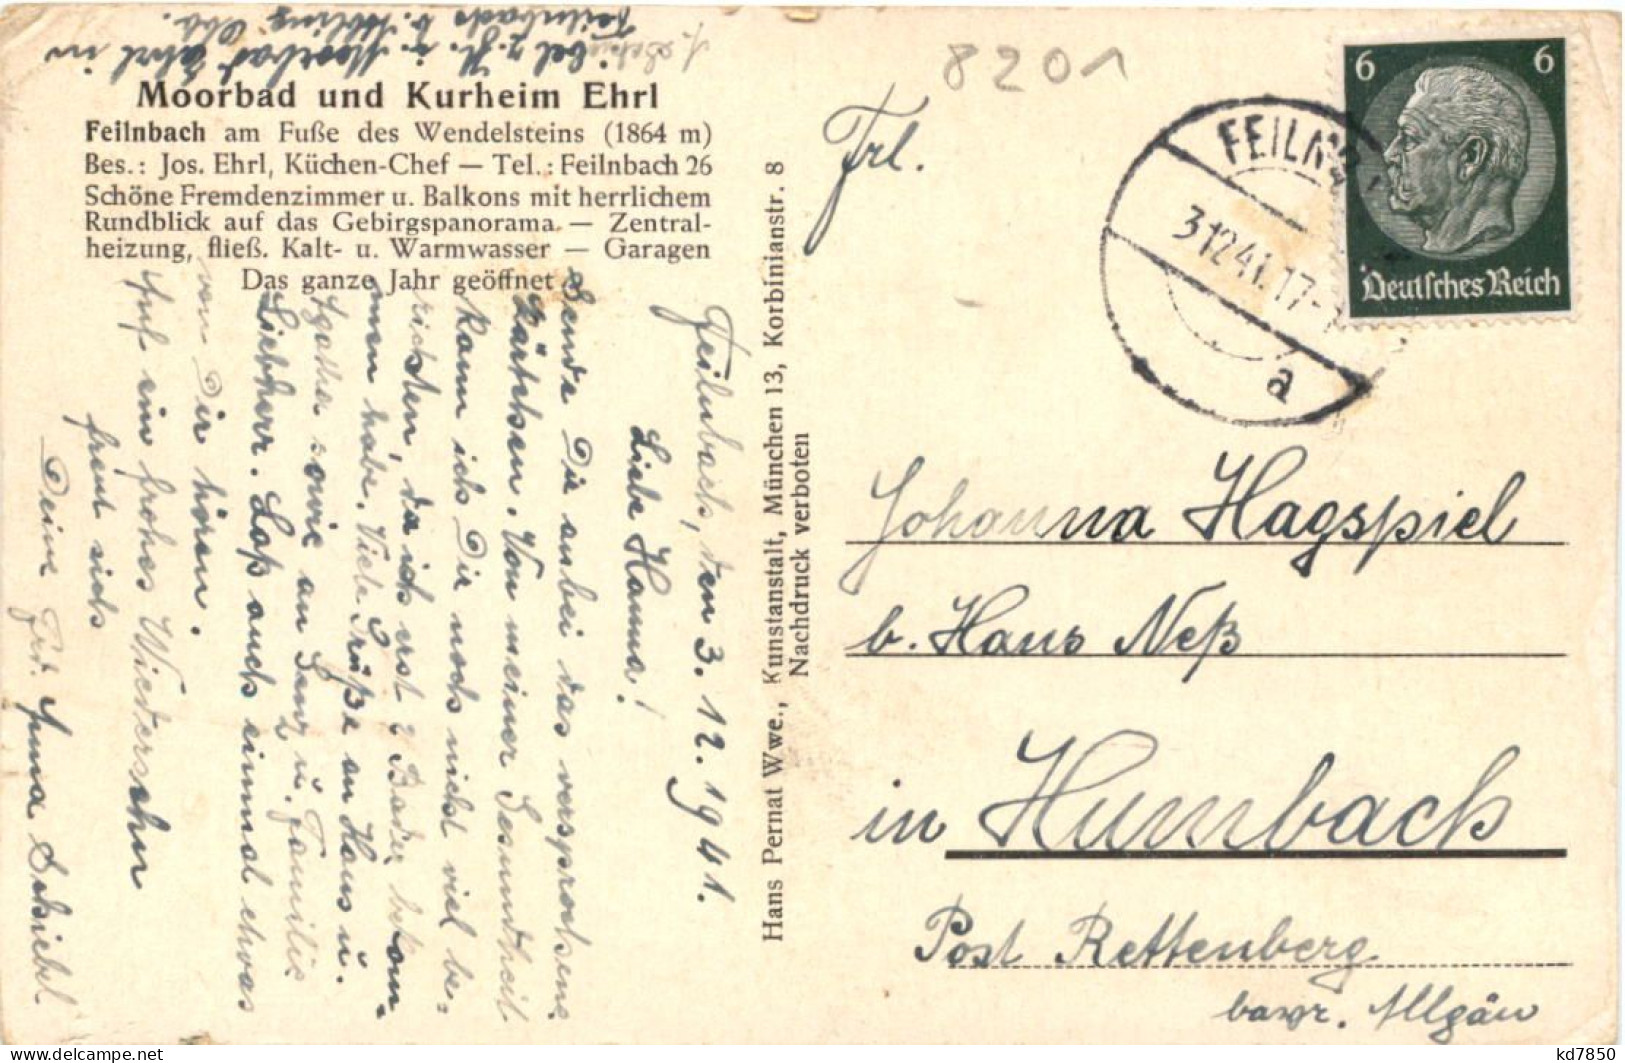 Moorbad und Kurheim Ehrl
Feilnbach am Fuße des Wendelsteins (1864 m)
Bes.: Jos. Ehrl, Küchen-Chef — Tel.: Feilnbach 26
Schöne Fremdenzimmer u. Balkons mit herrlichem
Rundblick auf das Gebirgspanorama. — Zentral-
heizung, fließ. Kalt- u. Warmwasser — Garagen
Das ganze Jahr geöffnet
Feilnbach, den 3. 12. 1941.
Liebe Hanna!
Sende Dir anbei das versprochene
Kärtchen. Von meiner Gesundheit
kann ich Dir noch nicht viel be-
richten, da ich erst 2 Bäder bekom-
men habe. Viele Grüße an Haus u.
Agatha sowie an Senz u. Familie
Liebherr. Laß auch einmal etwas
von Dir hören.
Auf ein frohes Wiedersehn
freut sich
Deine Frd. Anna Schiebel
bei z. Zt. i. Moorbad Ehrl in
Feilnbach b. Aibling Obb.
Hans Pernat Wwe., Kunstanstalt, München 13, Korbinianstr. 8
Nachdruck verboten
8201
6 6
Deutsches Reich
FEILNB
31241.17-
a
Frl.
Johanna Hagspiel
b. Hans Neß
in Humbach
Post Rettenberg
bayr. Allgäu
kd7850
© www.delcampe.net